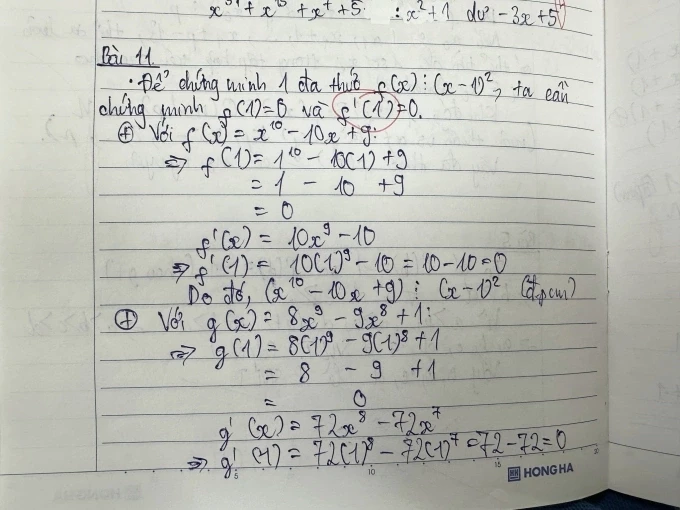 x³¹ + x¹³ + x⁴ + 5 : x² + 1 dư -3x + 5
Bài 11
• Để chứng minh 1 đa thức f(x) ⋮ (x-1)², ta cần
chứng minh f(1)=0 và f'(1)=0.
⊕ Với f(x) = x¹⁰ - 10x + 9:
⇒ f(1) = 1¹⁰ - 10(1) + 9
= 1 - 10 + 9
= 0
f'(x) = 10x⁹ - 10
⇒ f'(1) = 10(1)⁹ - 10 = 10 - 10 = 0
Do đó, (x¹⁰ - 10x + 9) ⋮ (x-1)² (đpcm)
⊕ Với g(x) = 8x⁹ - 9x⁸ + 1:
⇒ g(1) = 8(1)⁹ - 9(1)⁸ + 1
= 8 - 9 + 1
= 0
g'(x) = 72x⁸ - 72x⁷
⇒ g'(1) = 72(1)⁸ - 72(1)⁷ = 72 - 72 = 0
5 10 15 20
HONG HA